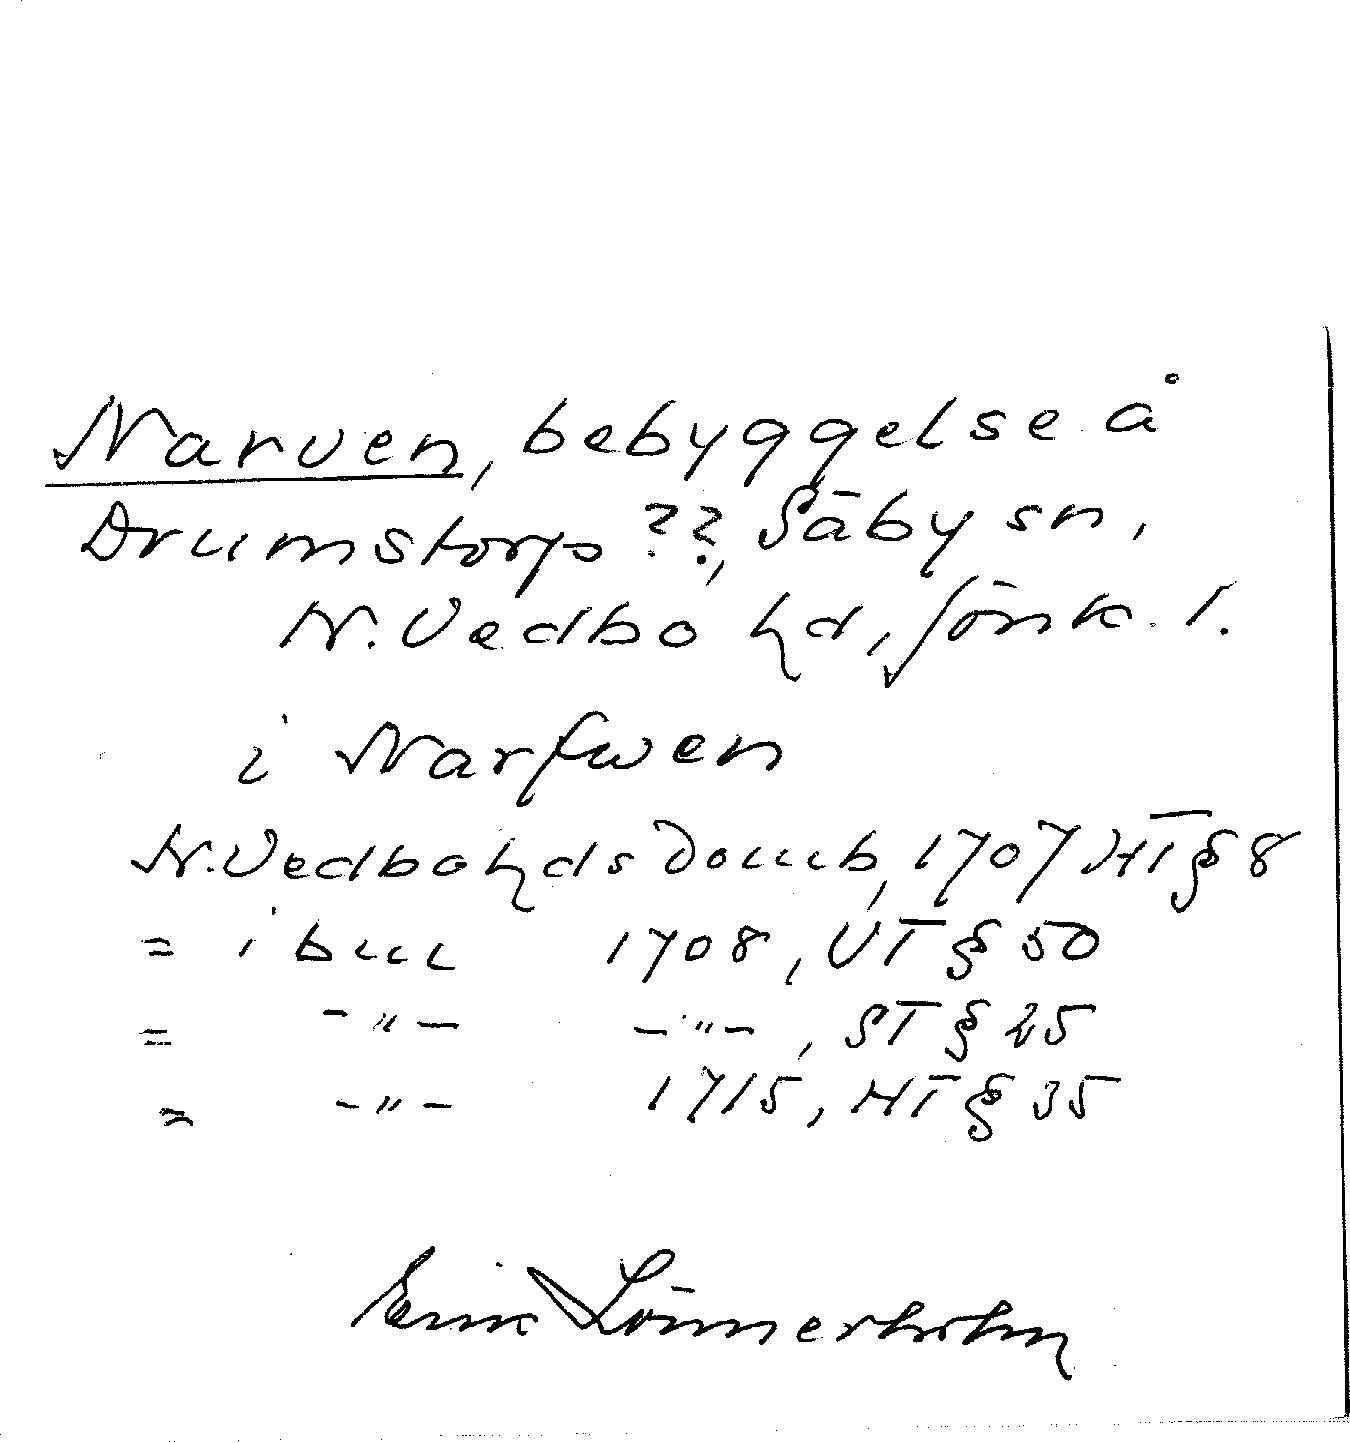 Narven, bebyggelse å
Drumstorp ??, Säby sn,
N. Vedbo hd, Jönk. l.
i Narfwen
N. Vedbo hds Domb, 1707 HT § 8
= i bm 1708, VT § 50
= -"- -"-, ST § 25
= -"- 1715, HT § 35
Erik Lönnerholm